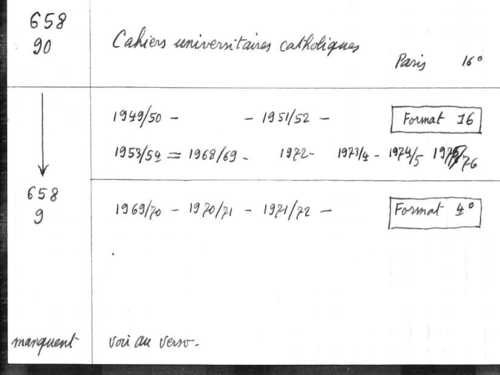 658
90
Cahiers universitaires catholiques
Paris 16°
1949/50 - - 1951/52 - Format 16
1953/54 = 1968/69 - 1972 - 1973/4 - 1974/5 1975/76
658
9
1969/70 - 1970/71 - 1971/72 - Format 4°
manquent voir au verso.